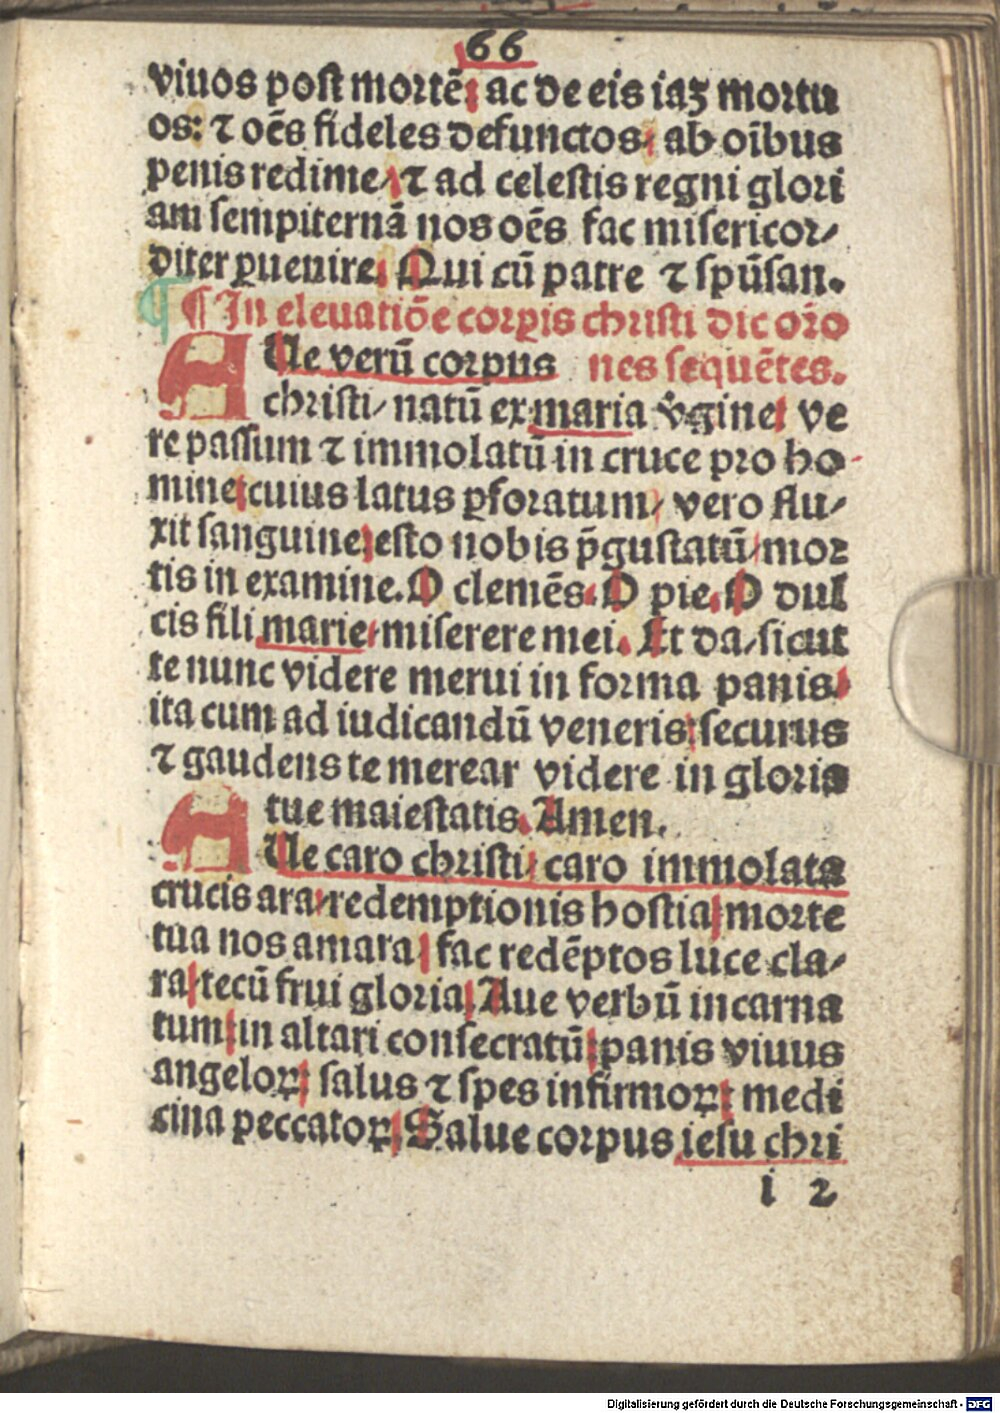 66
viuos post mortē: ac de eis iaꝫ mortu
os: ⁊ oēs fideles defunctos/ ab oībus
penis redime/ ⁊ ad celestis regni glori
am sempiternā nos oēs fac misericor/
diter ꝑuenire. Qui cū patre ⁊ spūsan.
¶ ¶ In eleuatiōe corꝑis christi dic oro
AUe verū corpus nes sequētes.
christi/ natū ex maria v̓gine: ve
re passum ⁊ immolatū in cruce pro ho
mine: cuius latus ꝑforatum/ vero flu/
xit sanguine: esto nobis p̄gustatū/ mor
tis in examine. O clemēs. O pie. O dul
cis fili marie/ miserere mei. Et da/ sicut
te nunc videre merui in forma panis:
ita cum ad iudicandū veneris: securus
⁊ gaudens te merear videre in gloria
tue maiestatis. Amen.
AUe caro christi/ caro immolata
crucis ara/ redemptionis hostia/ morte
tua nos amara/ fac redēptos luce cla/
ra/ tecū frui gloria. Aue verbū incarna
tum: in altari consecratū: panis viuus
angeloꝝ: salus ⁊ spes infirmoꝝ: medi
cina peccatoꝝ. Salue corpus iesu chri
i 2
Digitalisierung gefördert durch die Deutsche Forschungsgemeinschaft - DFG